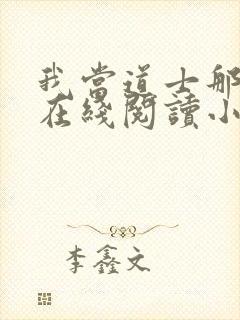 我當道士那
在綫閱讀小
李鑫文